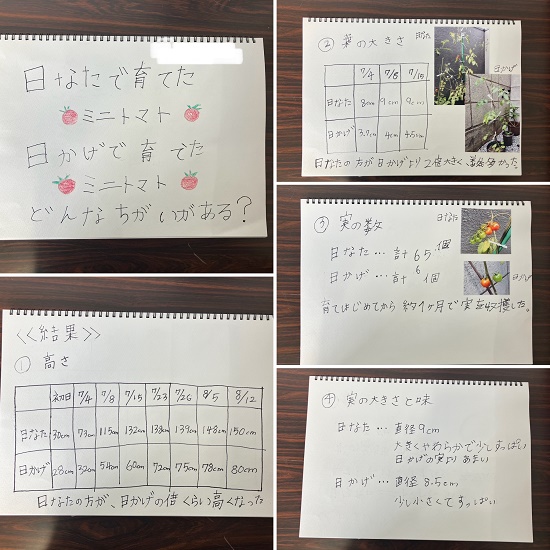 日なたで育てた
ミニトマト
日かげで育てた
ミニトマト
どんなちがいがある?
<<結果>>
① 高さ
初日 7/4 7/8 7/15 7/23 7/26 8/5 8/12
日なた 30cm 73cm 115cm 132cm 138cm 139cm 148cm 150cm
日かげ 28cm 32cm 54cm 60cm 72cm 75cm 78cm 80cm
日なたの方が、日かげの倍くらい高くなった
② 葉の大きさ
日なた
日かげ
7/4 7/8 7/15
日なた 8cm 9cm 9cm
日かげ 3.7cm 4cm 4.5cm
日なたの方が日かげより2倍大きく葉も多かった。
③ 実の数
日なた
日なた…計65個
日かげ…計6個
日かげ
育てはじめてから約1ヶ月で実を収穫した。
④ 実の大きさと味
日なた…直径9cm
大きくやわらかで少しすっぱい
日かげの実よりあまい
日かげ…直径8.5cm
少し小さくてすっぱい